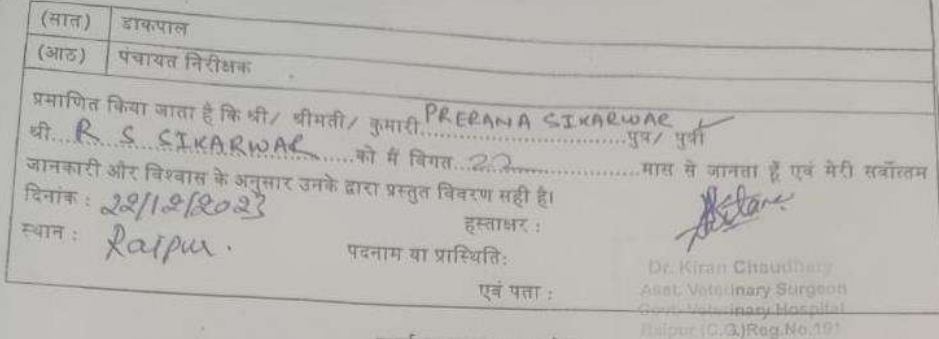 (सात) डाकपाल
(आठ) पंचायत निरीक्षक
प्रमाणित किया जाता है कि श्री/ श्रीमती/ कुमारी PRERANA SIKARWAR पुत्र/ पुत्री
श्री... R S SIKARWAR ......को मैं विगत.. 22 ..................मास से जानता हूँ एवं मेरी सर्वोत्तम
जानकारी और विश्वास के अनुसार उनके द्वारा प्रस्तुत विवरण सही है।
दिनांक : 22/12/2023
हस्ताक्षर :
स्थान : Raipur.
पदनाम या प्रास्थिति:
एवं पता :
Dr. Kiran Chaudhary
Asst. Veterinary Surgeon
Govt. Veterinary Hospital
Raipur (C.G.) Reg.No.191